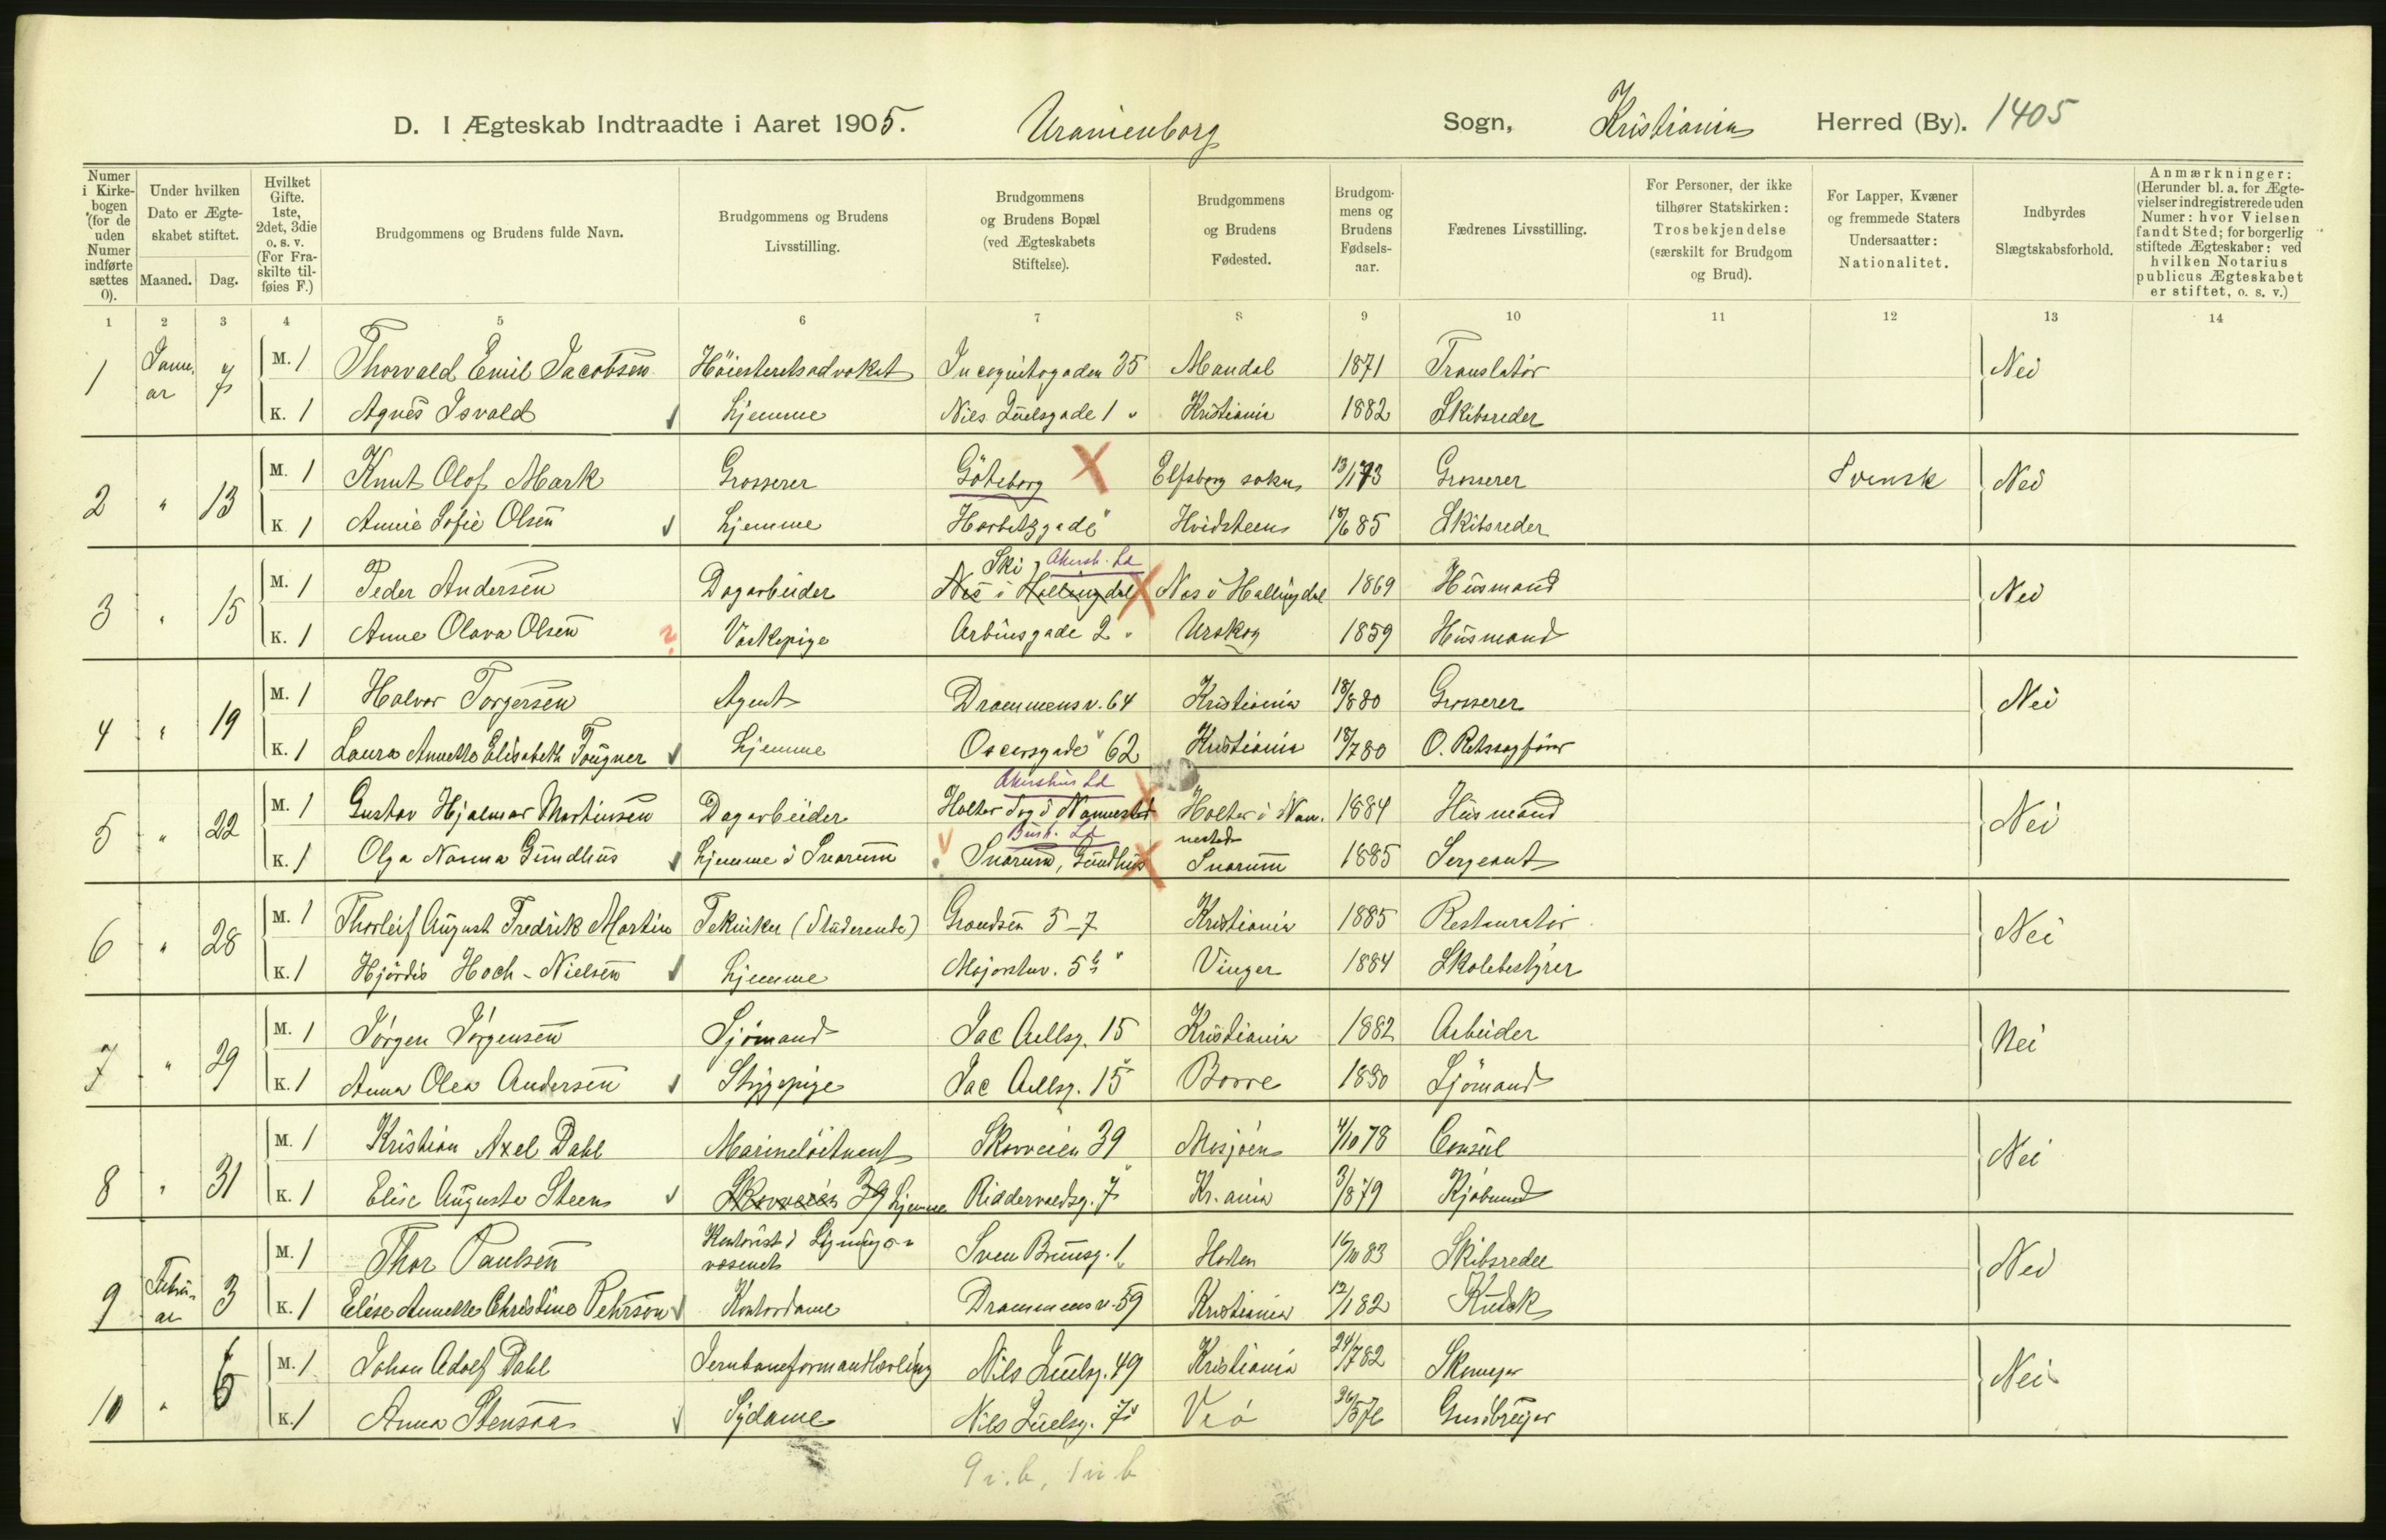 D. I Ægteskab Indtraadte i Aaret 1905. Uranienborg Sogn, Kristiania Herred (By). 1405
Numer i Kirkebogen (for de uden Numer indførte sættes 0).
Under hvilken Dato er Ægteskabet stiftet.
Maaned. Dag.
Hvilket Gifte. 1ste, 2det, 3die o. s. v. (For Fraskilte tilføies F.)
Brudgommens og Brudens fulde Navn.
Brudgommens og Brudens Livsstilling.
Brudgommens og Brudens Bopæl (ved Ægteskabets Stiftelse).
Brudgommens og Brudens Fødested.
Brudgommens og Brudens Fødselsaar.
Fædrenes Livsstilling.
For Personer, der ikke tilhører Statskirken: Trosbekjendelse (særskilt for Brudgom og Brud).
For Lapper, Kvæner og fremmede Staters Undersaatter: Nationalitet.
Indbyrdes Slægtskabsforhold.
Anmærkninger: (Herunder bl. a. for Ægtevielser indregistrerede uden Numer: hvor Vielsen fandt Sted; for borgerlig stiftede Ægteskaber: ved hvilken Notarius publicus Ægteskabet er stiftet, o. s. v.)
1 2 3 4 5 6 7 8 9 10 11 12 13 14
1 Januar 7 M. 1 Thorvald Emil Jacobsen Höiesteretsadvokat Incognitogaden 35 Mandal 1871 Translatör Nei
K. 1 Agnes Isvald hjemme Niels Juelsgade 1 Kristiania 1882 Skibsreder
2 " 13 M. 1 Knut Olof Mark Grosserer Göteborg Elfsborg sokn 13/1 73 Grosserer Svensk Nei
K 1 Annie Sofie Olsen hjemme Horbitzgade Hvidsteen 18/6 85 Skibsreder
3 " 15 M. 1 Peder Andersen Dagarbeider Ski, Akersh. La Nes i Hallingdal Nes i Hallingdal 1869 Husmand Nei
K. 1 Anne Olava Olsen ? Vaskepige Arbinsgade 2 Urskog 1859 Husmand
4 " 19 M. 1 Halvor Torgersen Agent Drammensv. 64 Kristiania 18/8 80 Grosserer Nei
K. 1 Laura Annette Elisabeth Tougner hjemme Oscarsgade 62 Kristiania 18/7 80 O. Retssagförer
5 " 22 M. 1 Gustav Hjalmar Martinsen Dagarbeider Akershus La Holter Sog i Nannestad Holter i Nannestad 1884 Husmand Nei
K. 1 Olga Nanna Gundhus hjemme i Snarum Busk. La Snarum, Gundhus Snarum 1885 Sergeant
6 " 28 M. 1 Thorleif August Fredrik Martin Tekniker (Studerende) Grændsen 5-7 Kristiania 1885 Restauratör Nei
K. 1 Hjördis Hoch-Nielsen hjemme Majorstuv. 5 b Vinger 1884 Skolebestyrer
7 " 29 M. 1 Jörgen Jörgensen Sjömand Jac Aallsg. 15 Kristiania 1882 Arbeider Nei
K. 1 Anna Olea Andersen Strygepige Jac Aallsg. 15 Borre 1880 Sjömand
8 " 31 M. 1 Kristian Axel Dahl Marinelöitnant Skovveien 39 Mosjöen 4/10 78 Consul Nei
K. 1 Elise Augusta Steen Skovveien 39 hjemme Riddervoldsg. 7 Kr.ania 3/8 79 Kjöbmand
9 Februar 3 M. 1 Thor Paulsen Kontorist i Ligningsvæsenet Sven Brunsg. 1 Horten 16/10 83 Skibsreder Nei
K. 1 Elise Annette Christine Pehrson Kontordame Drammensv. 59 Kristiania 12/1 82 Kudsk
10 " 6 M. 1 Johan Adolf Dahl Nils Juelsg. 49 Kristiania 24/7 82 Nei
K. 1 Anna Stensaa Sydame Nils Juelsg. 7 Veö 26/5 76 Gaardbruger
9 i. b, 1 u b